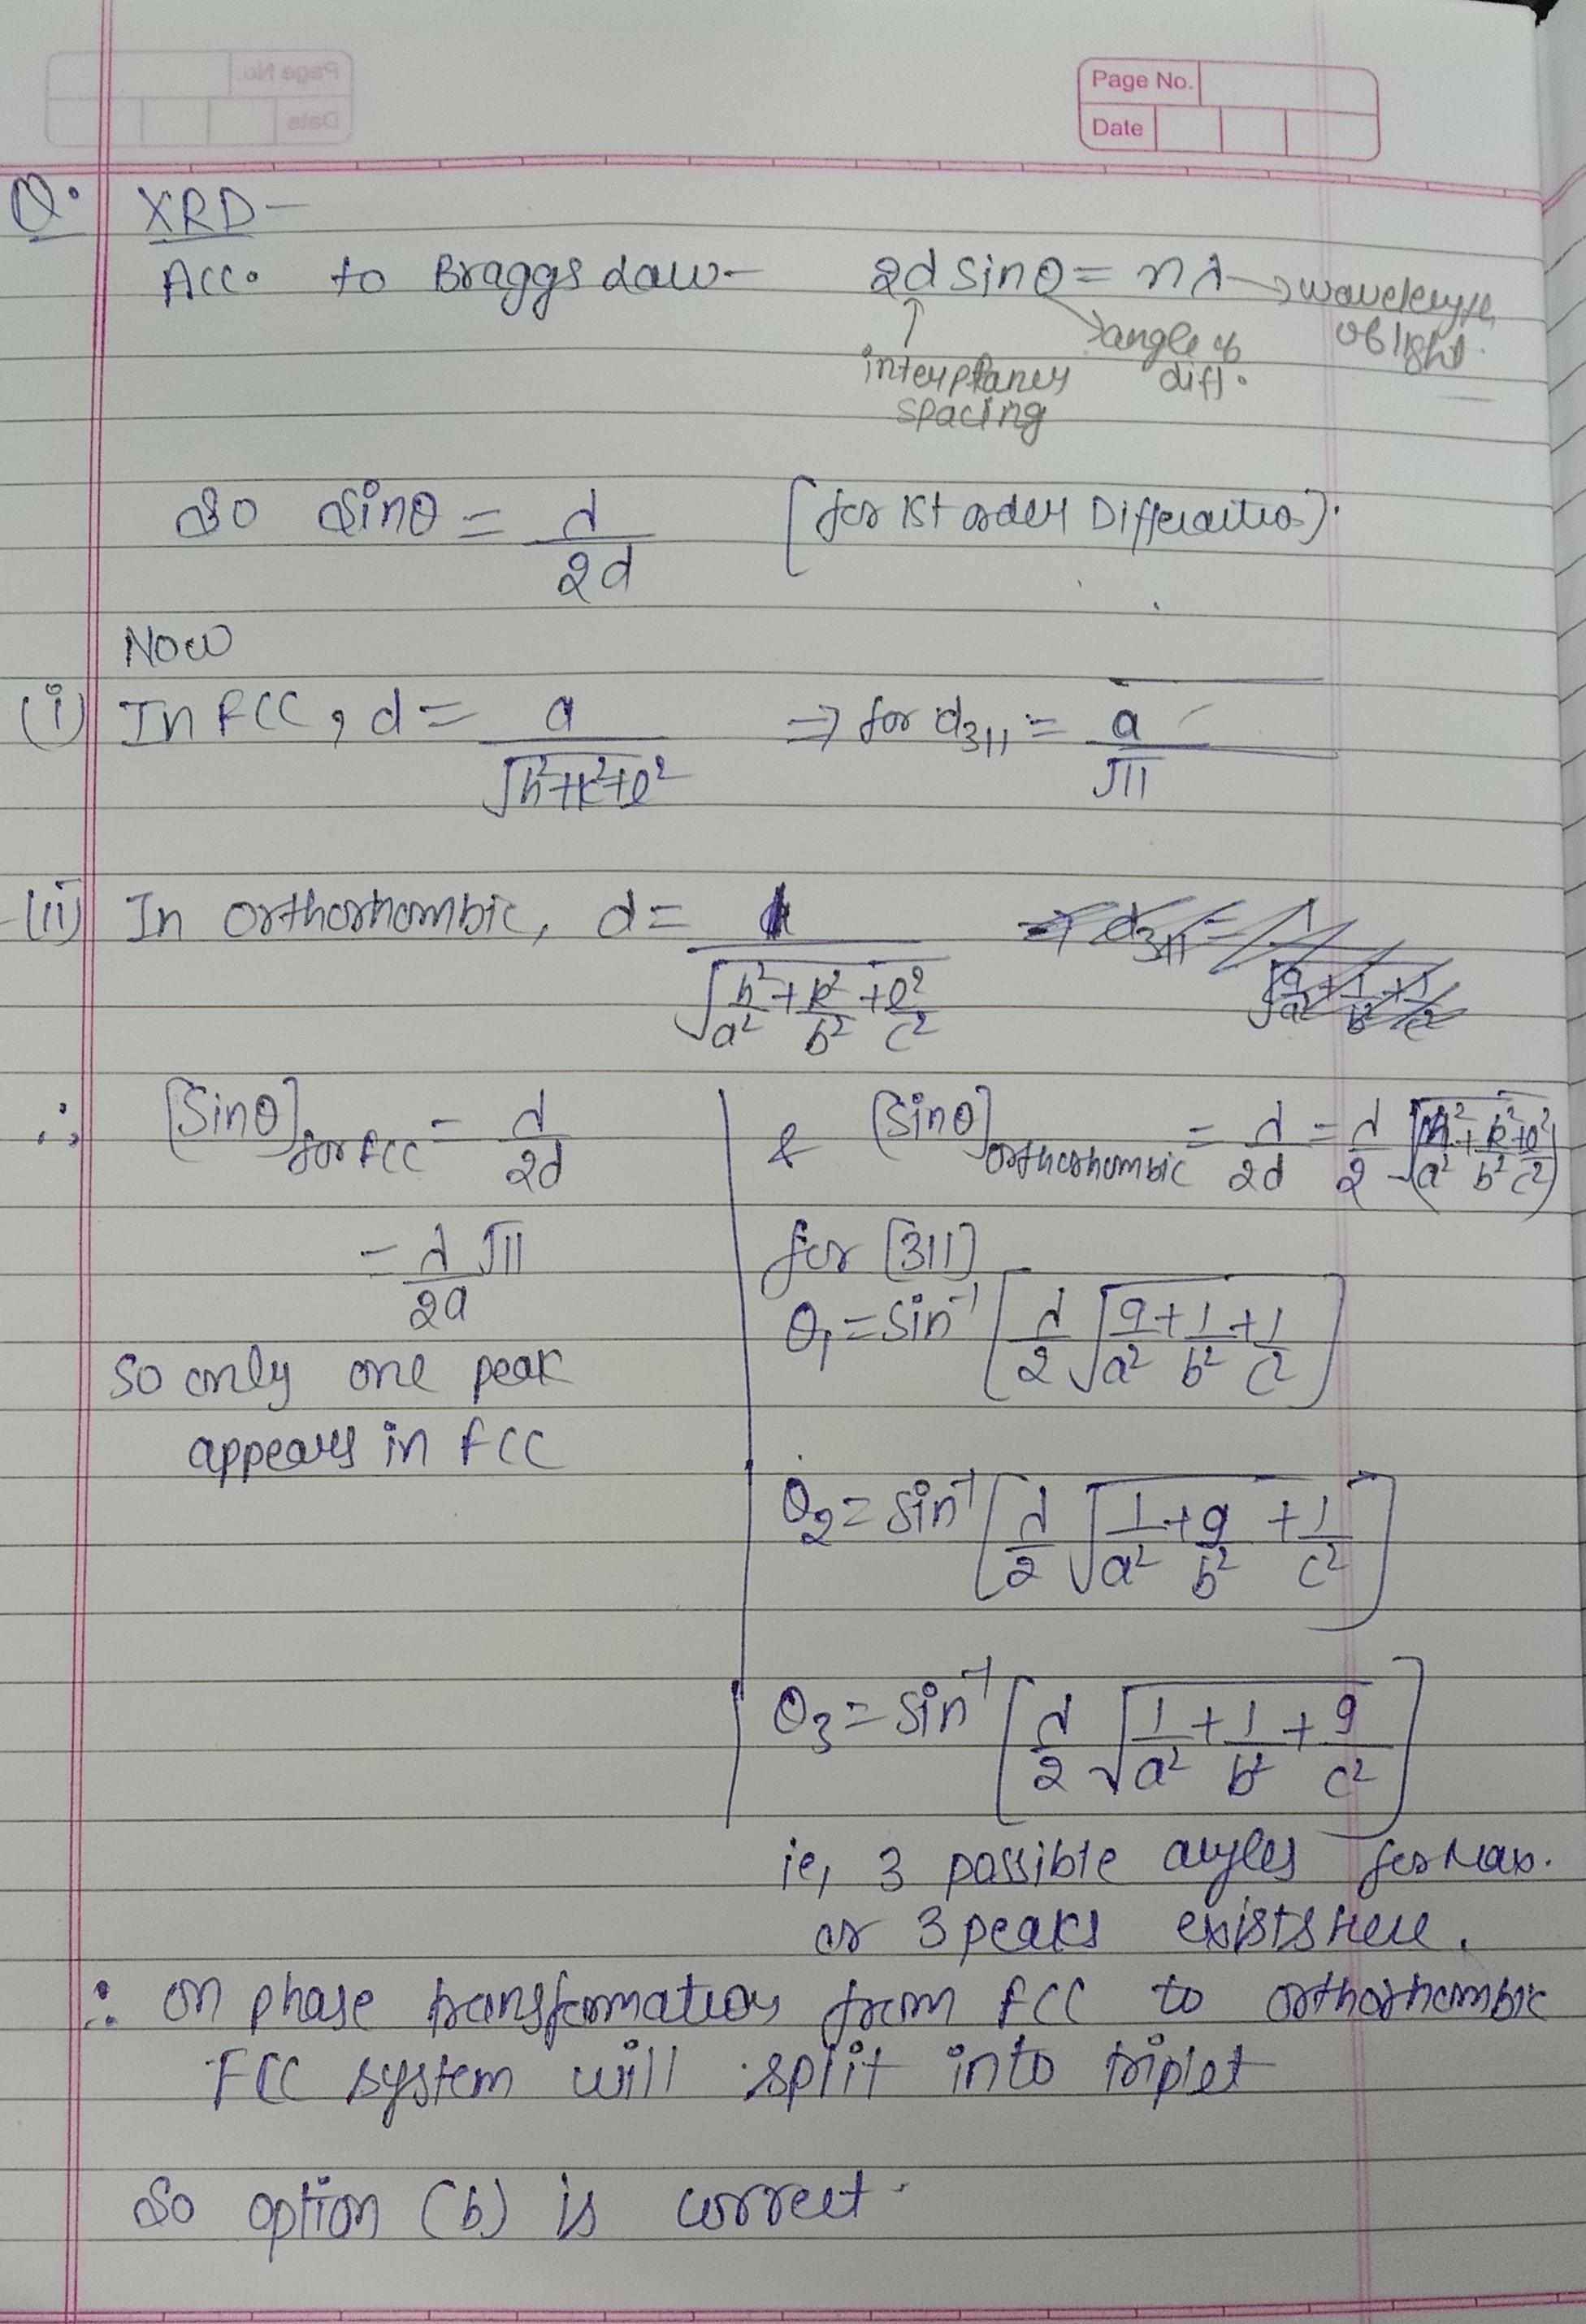 Page No.
Date
Q. XRD-
Acc. to Braggs Law- 2d sinθ = nλ → wavelength of light
interplaner spacing
angle of diff.
So Sinθ = λ/2d [for 1st order Diffraction].
Now
(i) In FCC, d = a/√(h²+k²+l²) ⇒ for d₃₁₁ = a/√11
(ii) In orthorhombic, d = 1/√(h²/a² + k²/b² + l²/c²)
∴ [Sinθ] for FCC = λ/2d
= λ/2a √11
so only one peak
appears in FCC
& [Sinθ] orthorhombic = λ/2d = λ/2 √(h²/a² + k²/b² + l²/c²)
for [311]
θ₁ = Sin⁻¹ [λ/2 √(9/a² + 1/b² + 1/c²)]
θ₂ = Sin⁻¹ [λ/2 √(1/a² + 9/b² + 1/c²)]
θ₃ = Sin⁻¹ [λ/2 √(1/a² + 1/b² + 9/c²)]
ie, 3 possible angles for Max.
or 3 peaks exists here.
∴ on phase transformation from FCC to orthorhombic
FCC system will split into triplet
So option (b) is correct.